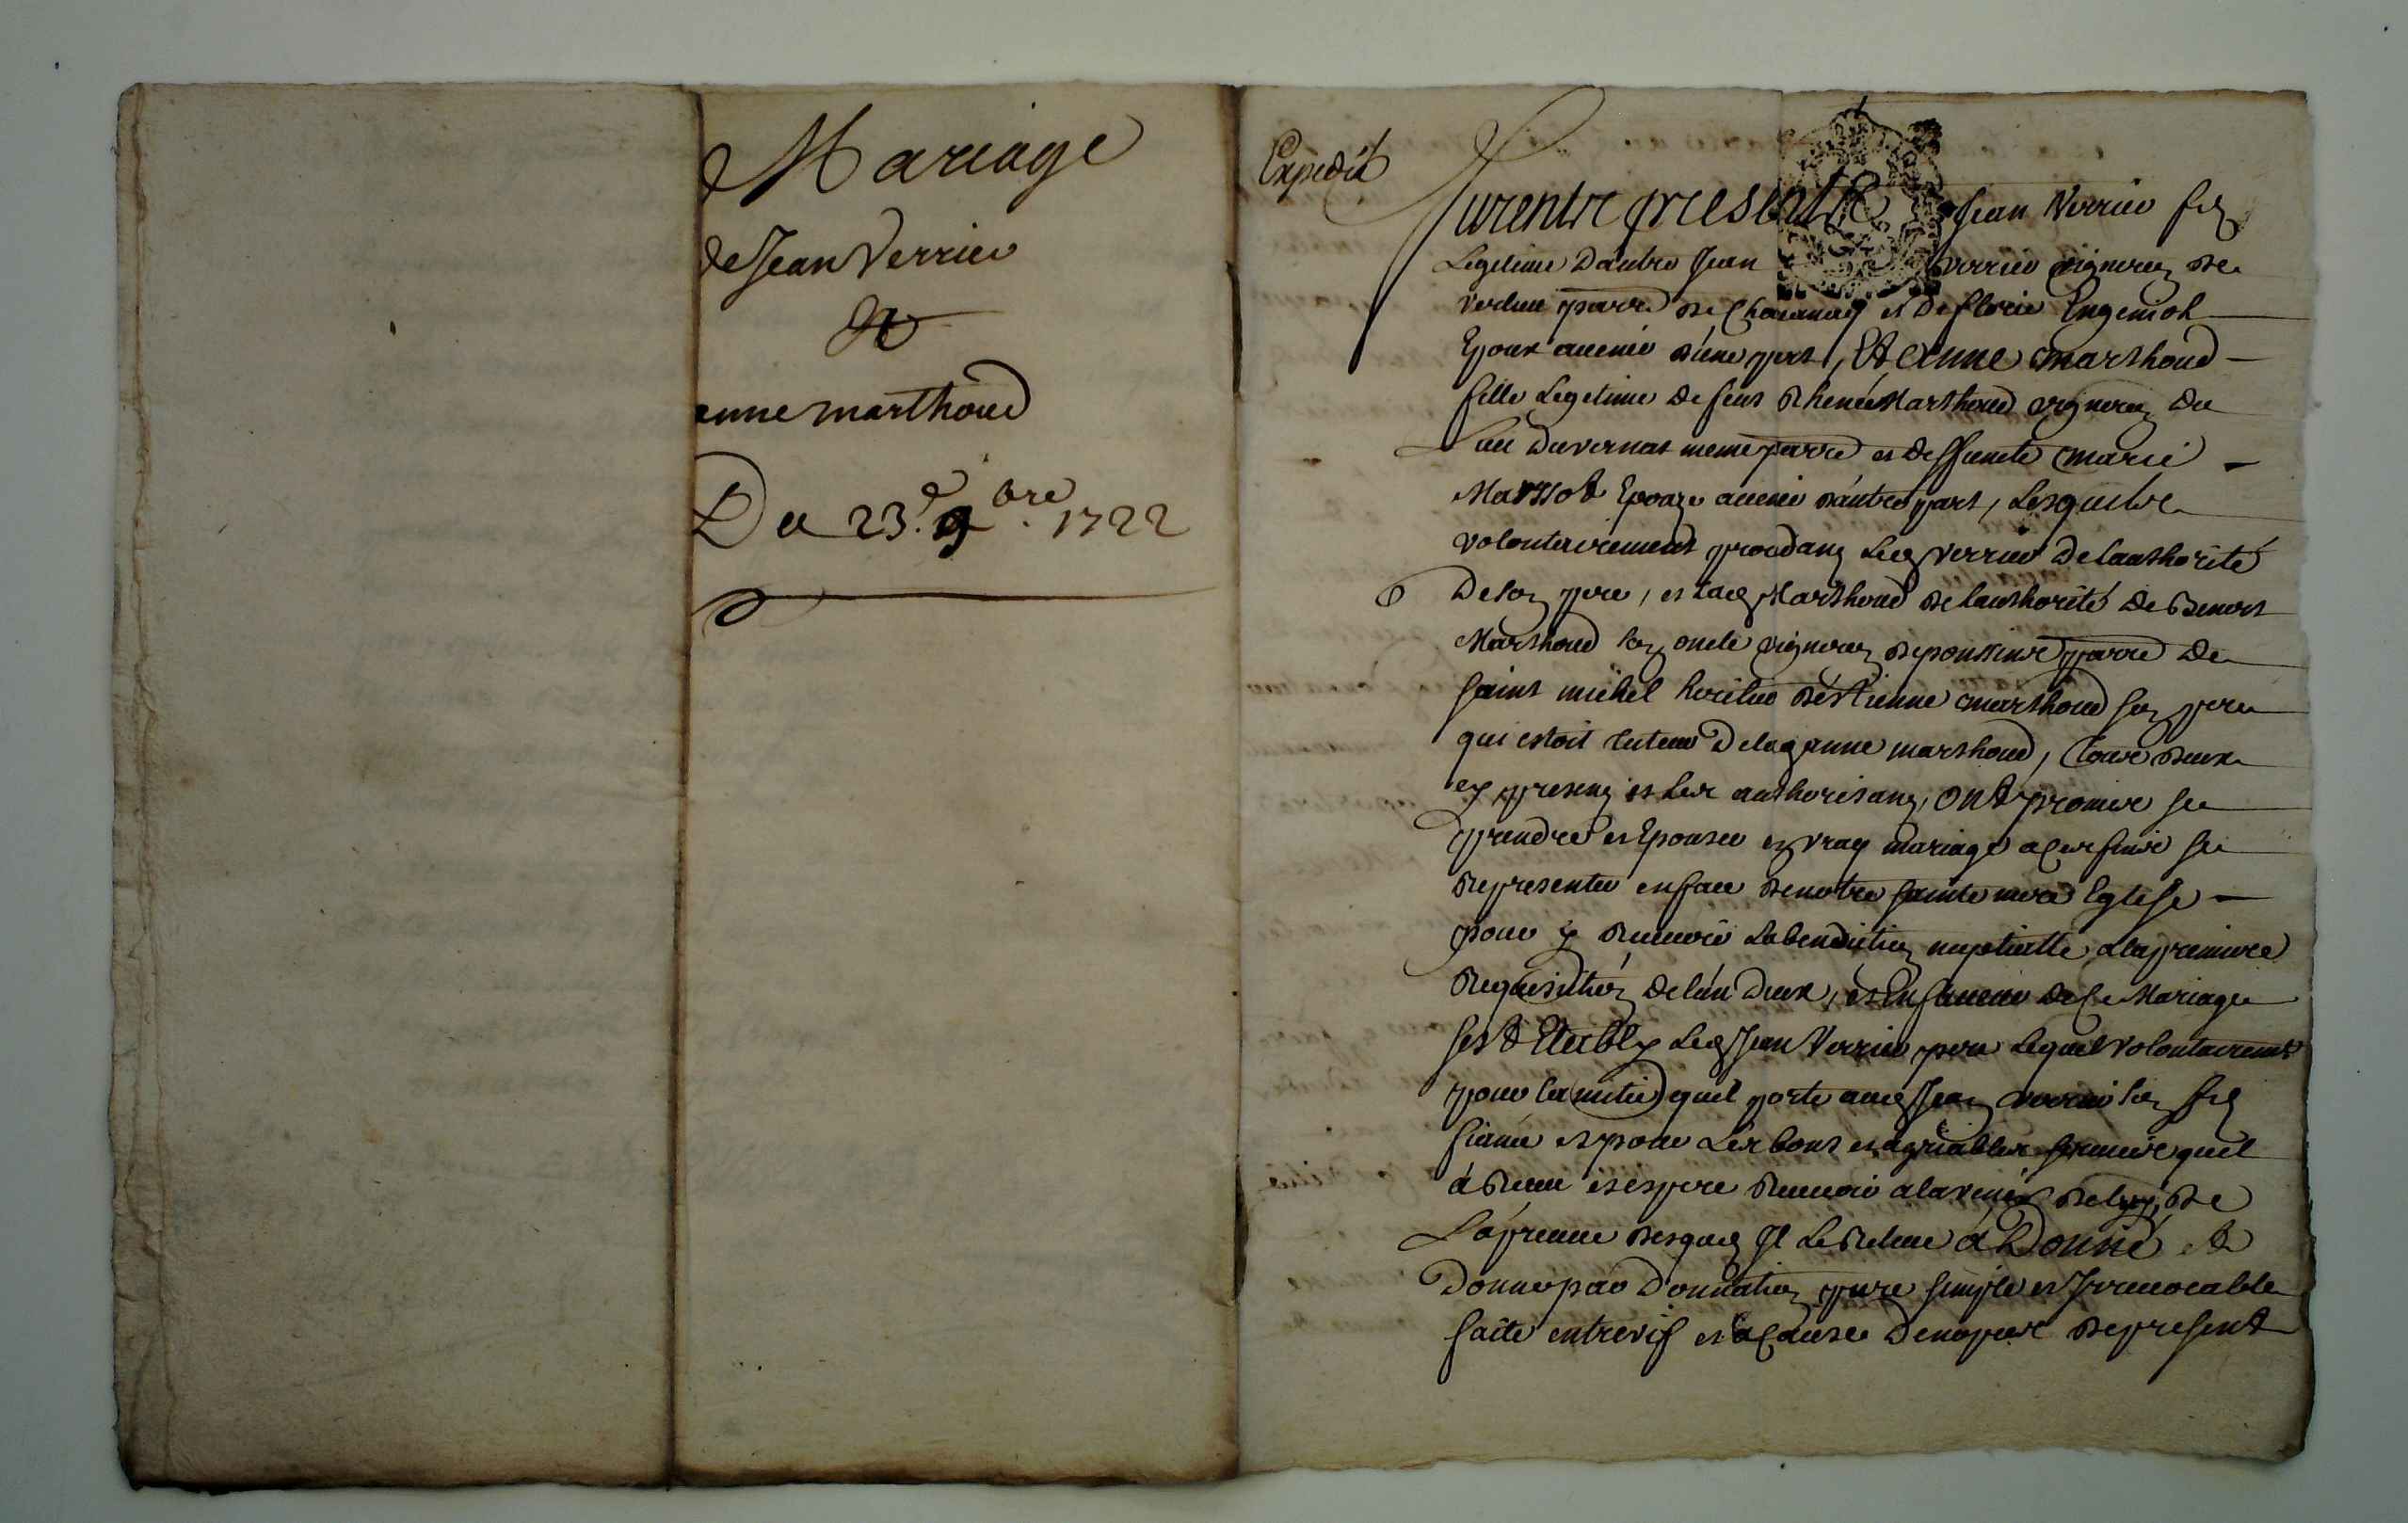 Mariage
de Jean Verrier
Et
anne marthoud
Du 23.e 9.bre 1722
Expedié
furent presents Jean Verrier fils
Legitime d'autre Jean verrier vigneron de
parr.e de et de florie
Epoux avenir d'une part, Et anne marthoud
fille Legitime de feus marthoud vigneron du
Lieu duvernat meme parr.e et deffuncte marie
Epouze avenir d'autre part, Lesquels
volontairement procedans led. verrier de lauthorité
de son pere, et lad. marthoud de lauthorité de Benoist
Marthoud son oncle vigneron parr.e de
saint michel heritier d'estienne marthoud son pere
qui estoit tuteur de lad. anne marthoud, tous deux
cy presens et les authorisans, ont promis se
prendre et Epouser en vray mariage a ces fins se
representer en face de notre sainte mere Eglise
pour y recevoir la benediction nuptialle a la premiere
requisition de l'un deux, et En faveur de ce Mariage
sest Etably led. Jean Verrier pere Lequel volontairement
pour lamitié quil porte aud. Jean verrier son fils
fiancé et pour Les bons et agreables services quil
à receu et espere recevoir alavenir de luy, de
La preuve desquels Il Le releve à Donné et
Donne par Donnation pure simple et Irrevocable
faite entrevifs et acause de nopces de present